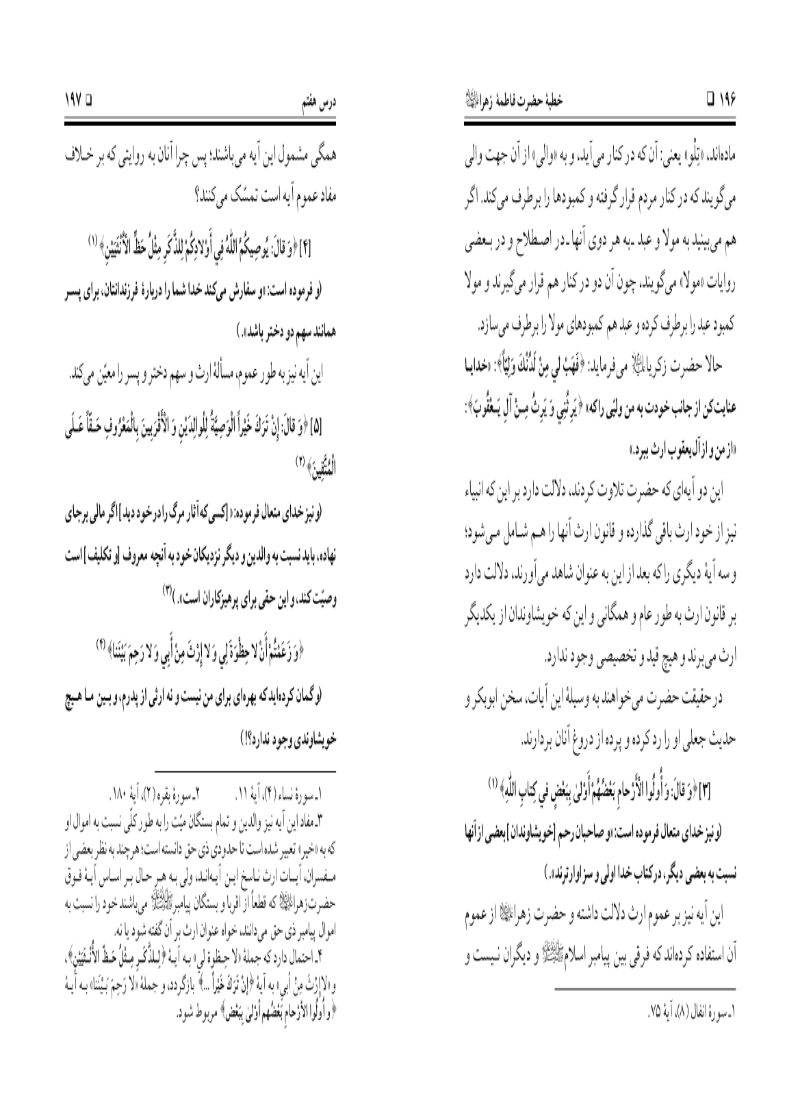 ۱۹۶ ❏ خطبهٔ حضرت فاطمهٔ زهرا
ماده‌اند، «تِلُو» یعنی: آن که در کنار می‌آید، و به «والی» از آن جهت والی
می‌گویند که در کنار مردم قرار گرفته و کمبودها را برطرف می‌کند. اگر
هم می‌بینید به مولا و عبد ـ به هر دوی آنها ـ در اصطلاح و در بعضی
روایات «مولا» می‌گویند، چون آن دو در کنار هم قرار می‌گیرند و مولا
کمبود عبد را برطرف کرده و عبد هم کمبودهای مولا را برطرف می‌سازد.
حالا حضرت زکریا می‌فرماید: ﴿فَهَبْ لي مِنْ لَدُنْكَ وَلِيّاً﴾: «خدایا
عنایت کن از جانب خودت به من ولیّی را که» ﴿يَرِثُني وَ يَرِثُ مِنْ آلِ يَعْقُوبَ﴾:
«از من و از آل یعقوب ارث ببرد.»
این دو آیه‌ای که حضرت تلاوت کردند، دلالت دارد بر این که انبیاء
نیز از خود ارث باقی گذارده و قانون ارث آنها را هم شامل می‌شود؛
و سه آیهٔ دیگری را که بعد از این به عنوان شاهد می‌آورند، دلالت دارد
بر قانون ارث به طور عام و همگانی و این که خویشاوندان از یکدیگر
ارث می‌برند و هیچ قید و تخصیصی وجود ندارد.
در حقیقت حضرت می‌خواهند به وسیلهٔ این آیات، سخن ابوبکر و
حدیث جعلی او را رد کرده و پرده از دروغ آنان بردارند.
[۳] ﴿وَ قالَ: وَ أُولُوا الْأَرْحامِ بَعْضُهُمْ أَوْلىٰ بِبَعْضٍ في كِتابِ اللّٰهِ﴾ (۱)
(و نیز خدای متعال فرموده است: «و صاحبان رحم [خویشاوندان] بعضی از آنها
نسبت به بعضی دیگر، در کتاب خدا اولی و سزاوارترند».)
این آیه نیز بر عموم ارث دلالت داشته و حضرت زهرا از عموم
آن استفاده کرده‌اند که فرقی بین پیامبر اسلام و دیگران نیست و
۱ـ سورهٔ انفال (۸)، آیهٔ ۷۵.
درس هفتم ❏ ۱۹۷
همگی مشمول این آیه می‌باشند؛ پس چرا آنان به روایتی که بر خلاف
مفاد عموم آیه است تمسّک می‌کنند؟
[۴] ﴿وَ قالَ: يُوصيكُمُ اللّٰهُ في أَوْلادِكُمْ لِلذَّكَرِ مِثْلُ حَظِّ الْأُنْثَيَيْنِ﴾ (۱)
(و فرموده است: «و سفارش می‌کند خدا شما را دربارهٔ فرزندانتان، برای پسر
همانند سهم دو دختر باشد».)
این آیه نیز به طور عموم، مسألهٔ ارث و سهم دختر و پسر را معیّن می‌کند.
[۵] ﴿وَ قالَ: إِنْ تَرَكَ خَيْراً الْوَصِيَّةُ لِلْوالِدَيْنِ وَ الْأَقْرَبينَ بِالْمَعْرُوفِ حَقّاً عَلَى
الْمُتَّقينَ﴾ (۲)
(و نیز خدای متعال فرموده: «[کسی که آثار مرگ را در خود دید] اگر مالی برجای
نهاده، باید نسبت به والدین و دیگر نزدیکان خود به آنچه معروف [و تکلیف] است
وصیّت کند، و این حقی برای پرهیزکاران است».) (۳)
﴿وَ زَعَمْتُمْ أَنْ لا حِظْوَةَ لي وَ لا إِرْثَ مِنْ أَبي وَ لا رَحِمَ بَيْنَنا﴾ (۴)
(و گمان کرده‌اید که بهره‌ای برای من نیست و نه ارثی از پدرم، و بین ما هیچ
خویشاوندی وجود ندارد؟!)
۱ـ سورهٔ نساء (۴)، آیهٔ ۱۱. ۲ـ سورهٔ بقره (۲)، آیهٔ ۱۸۰.
۳ـ مفاد این آیه نیز والدین و تمام بستگان میّت را به طور کلّی نسبت به اموال او
که به «خیر» تعبیر شده است تا حدودی ذی حق دانسته است؛ هرچند به نظر بعضی از
مفسران، آیات ارث ناسخ این آیه‌اند، ولی به هر حال بر اساس آیهٔ فوق
حضرت زهرا که قطعاً از اقربا و بستگان پیامبر می‌باشند خود را نسبت به
اموال پیامبر ذی حق می‌دانند، خواه عنوان ارث بر آن گفته شود یا نه.
۴ـ احتمال دارد که جملهٔ «لا حِظوة لي» به آیهٔ ﴿لِلذَّكَرِ مِثْلُ حَظِّ الأُنْثَيَيْنِ﴾،
و «لا إِرْثَ مِنْ أبي» به آیهٔ ﴿إِنْ تَرَكَ خَيْراً ...﴾ بازگردد، و جملهٔ «لا رَحِمَ بَيْنَنا» به آیهٔ
﴿و أُولُوا الأرْحامِ بَعْضُهم أَوْلىٰ بِبَعْض﴾ مربوط شود.